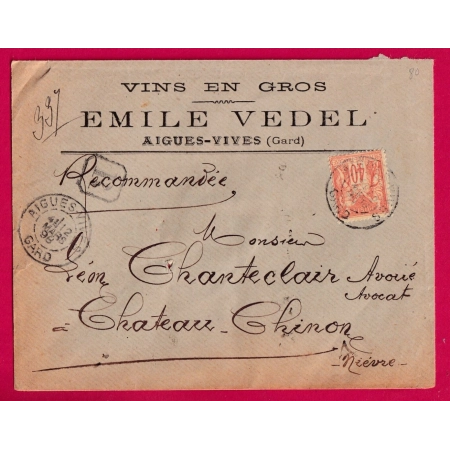 80
VINS EN GROS
337
EMILE VEDEL
AIGUES-VIVES (Gard)
R
Recommandée
40
AIGUES-VIVES
GARD
Monsieur
Gém Chanteclair Avoué
Avocat
à Chateau-Chinon
Nièvre